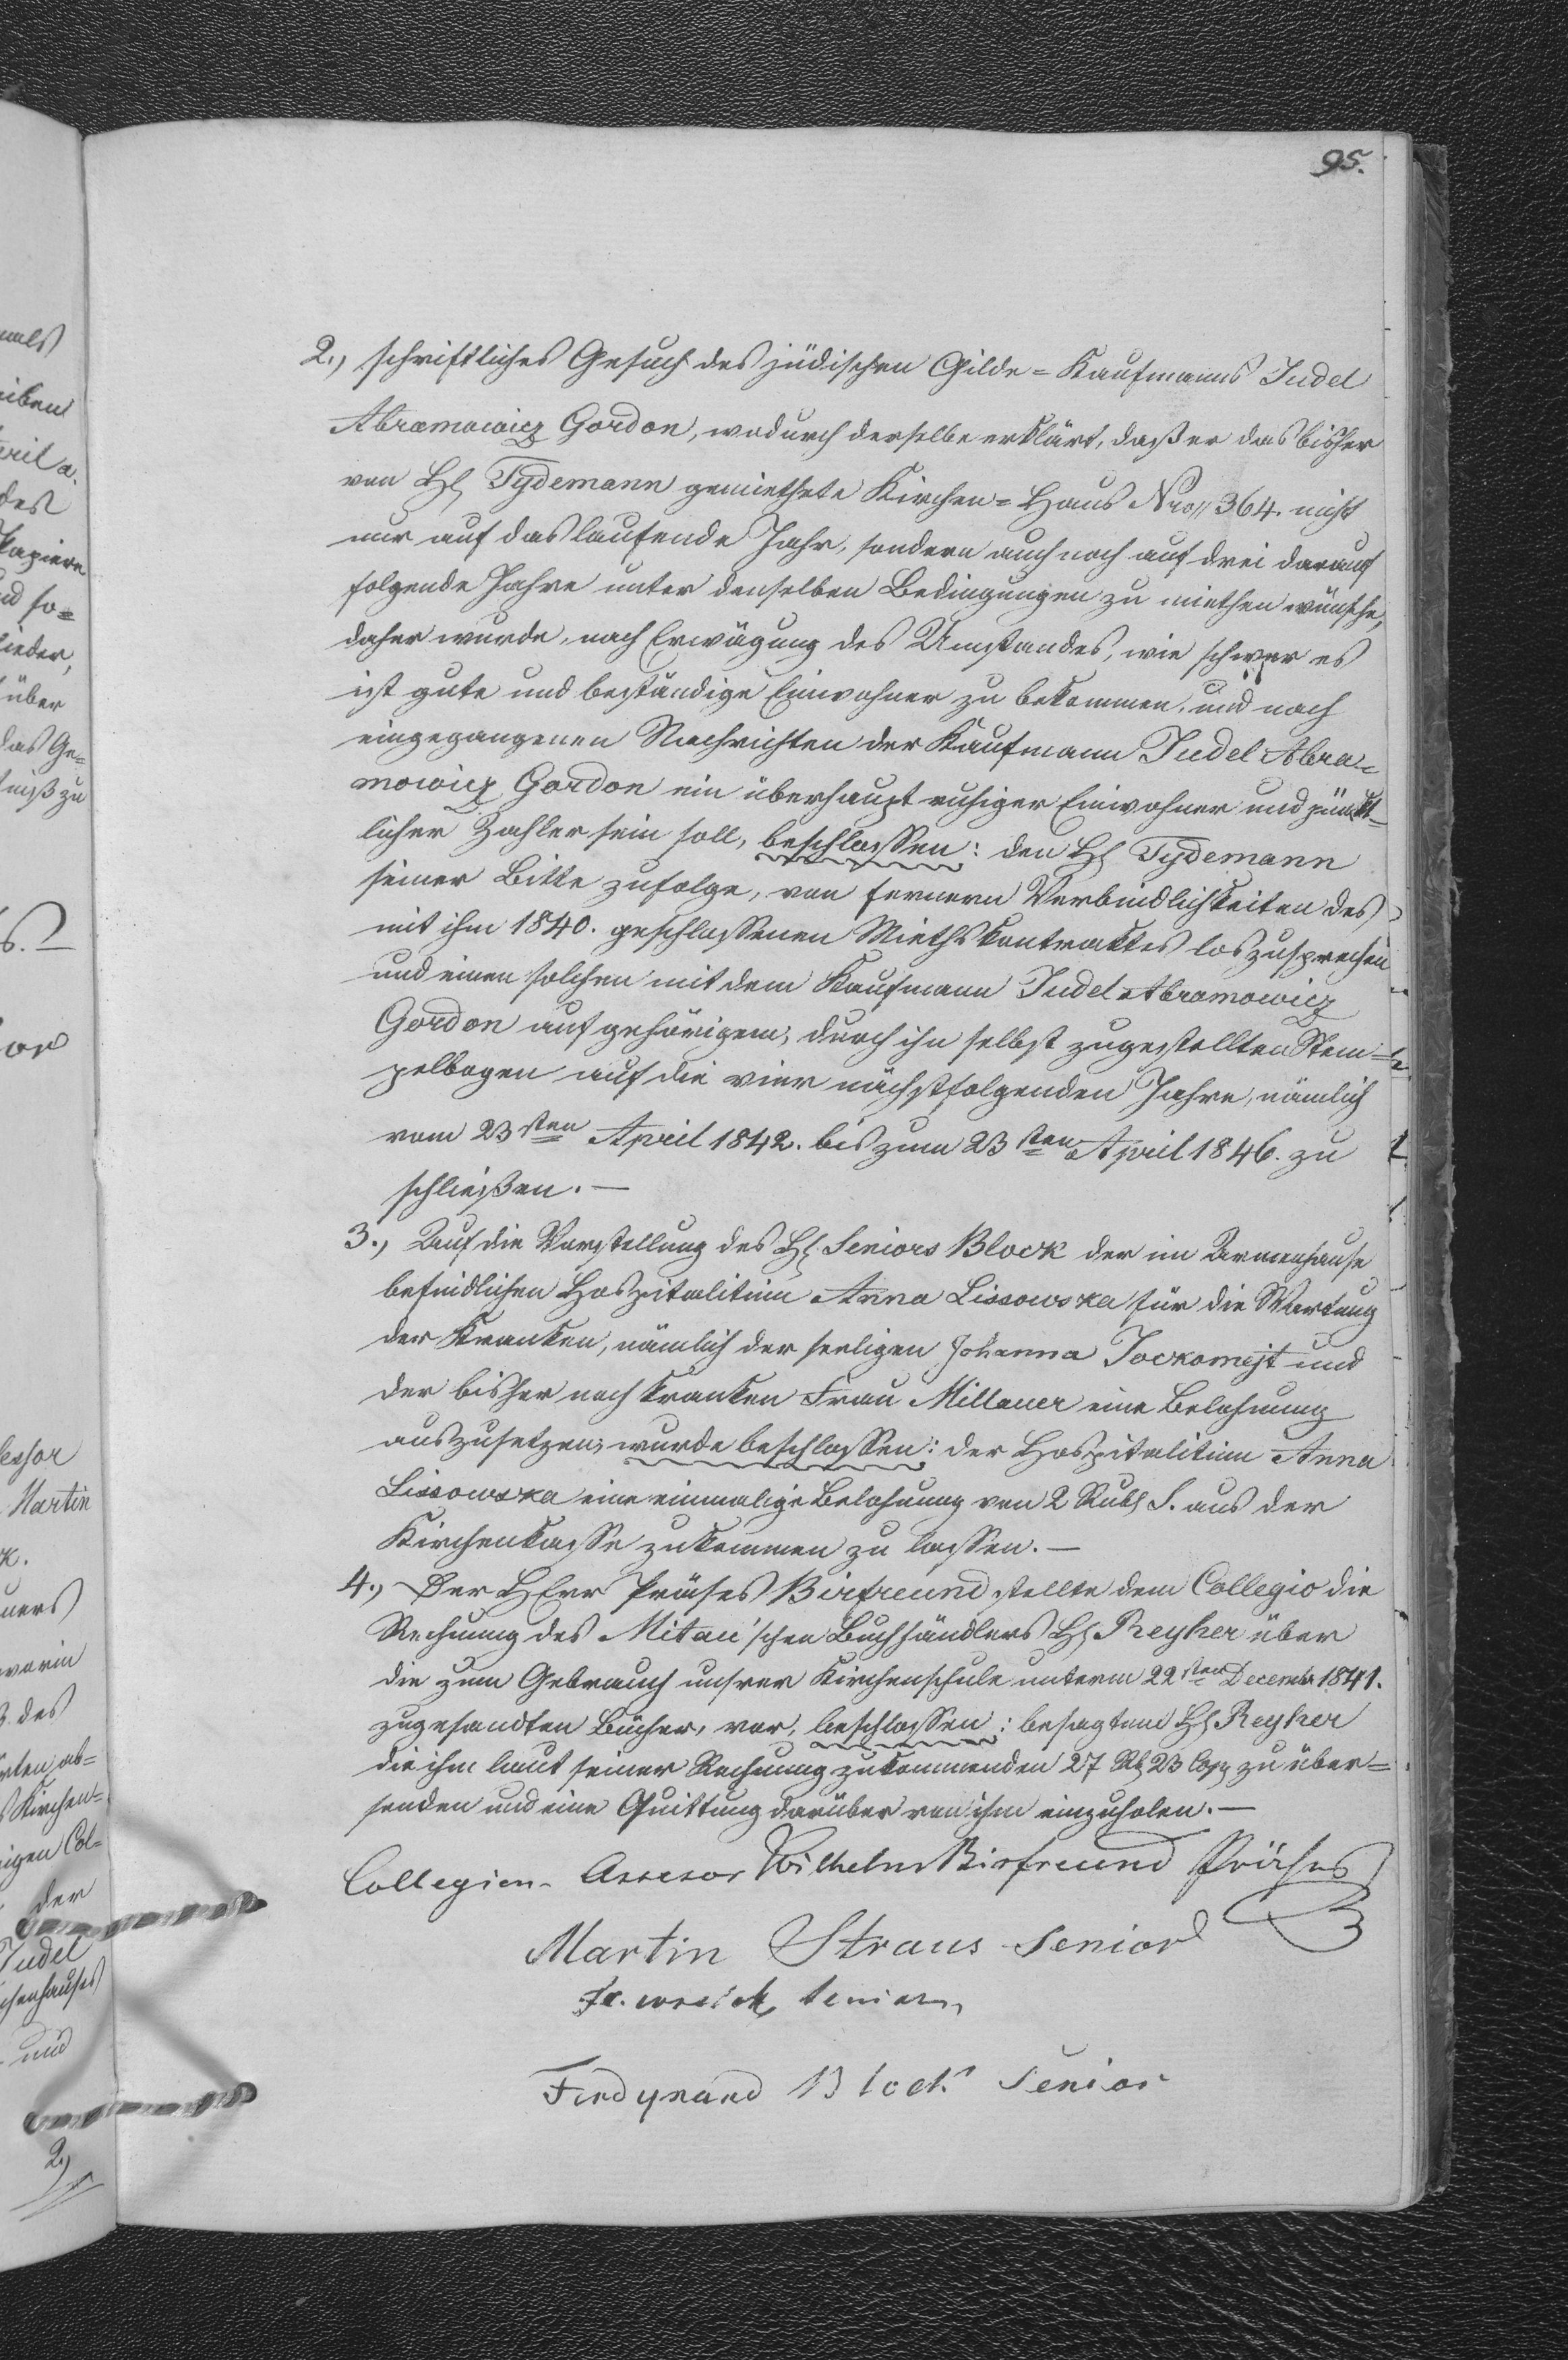 95.
2., schriftliches Gesuch des jüdischen Gilde=Kaufmanns Judel
Abramowicz Gordon, wodurch derselbe erklärt, daß er das bisher
von H. Tydemann gemiethete Kirchen=Haus Nro 364. nicht
nur auf das laufende Jahr, sondern auch noch auf drei darauf
folgende Jahre unter denselben Bedingungen zu miethen wünsche,
daher wurde, nach Erwägung des Umstandes, wie schwer es
ist gute und beständige Einwohner zu bekommen, und nach
eingegangenen Nachrichten der Kaufmann Judel Abra=
mowicz Gordon ein überhaupt ruhiger Einwohner und pünkt=
licher Zahler sein soll, beschlossen: den H. Tydemann
seiner Bitte zufolge, von fernern Verbindlichkeiten des
mit ihm 1840. geschlossenen Miethskontraktes loszusprechen
und einen solchen mit dem Kaufmann Judel Abramowicz
Gordon auf gehörigem, durch ihn selbst zugestellten Stem=
pelbogen auf die vier nächstfolgenden Jahre, nämlich
vom 23sten April 1842. bis zum 23sten April 1846. zu
schließen.—
3., Auf die Vorstellung des H. Seniors Block der im Armenhause
befindlichen Hospitalitinn Anna Lissowska für die Wartung
der Kranken, nämlich der seeligen Johanna Jockomejt und
der bisher noch kranken Frau Millauer eine Belohnung
auszusetzen, wurde beschlossen: der Hospitalitinn Anna
Lissowska eine einmalige Belohnung von 2 Rub. S. aus der
Kirchenkasse zukommen zu lassen.—
4., Der HErr Präses Birfreund stellte dem Collegio die
Rechnung des Mitau'schen Buchhändlers H. Reyher über
die zum Gebrauch unsrer Kirchenschule unterm 22sten December 1841.
zugesandten Bücher, vor, beschlossen: besagtem H. Reyher
die ihm laut seiner Rechnung zukommenden 27 Rb. 23 Cop. zu über=
senden und eine Quittung darüber von ihm einzuholen.—
Collegien-Assesor Wilhelm Birfreund Präses
Martin Straus Senior
Senior
Ferdynand Block Senior